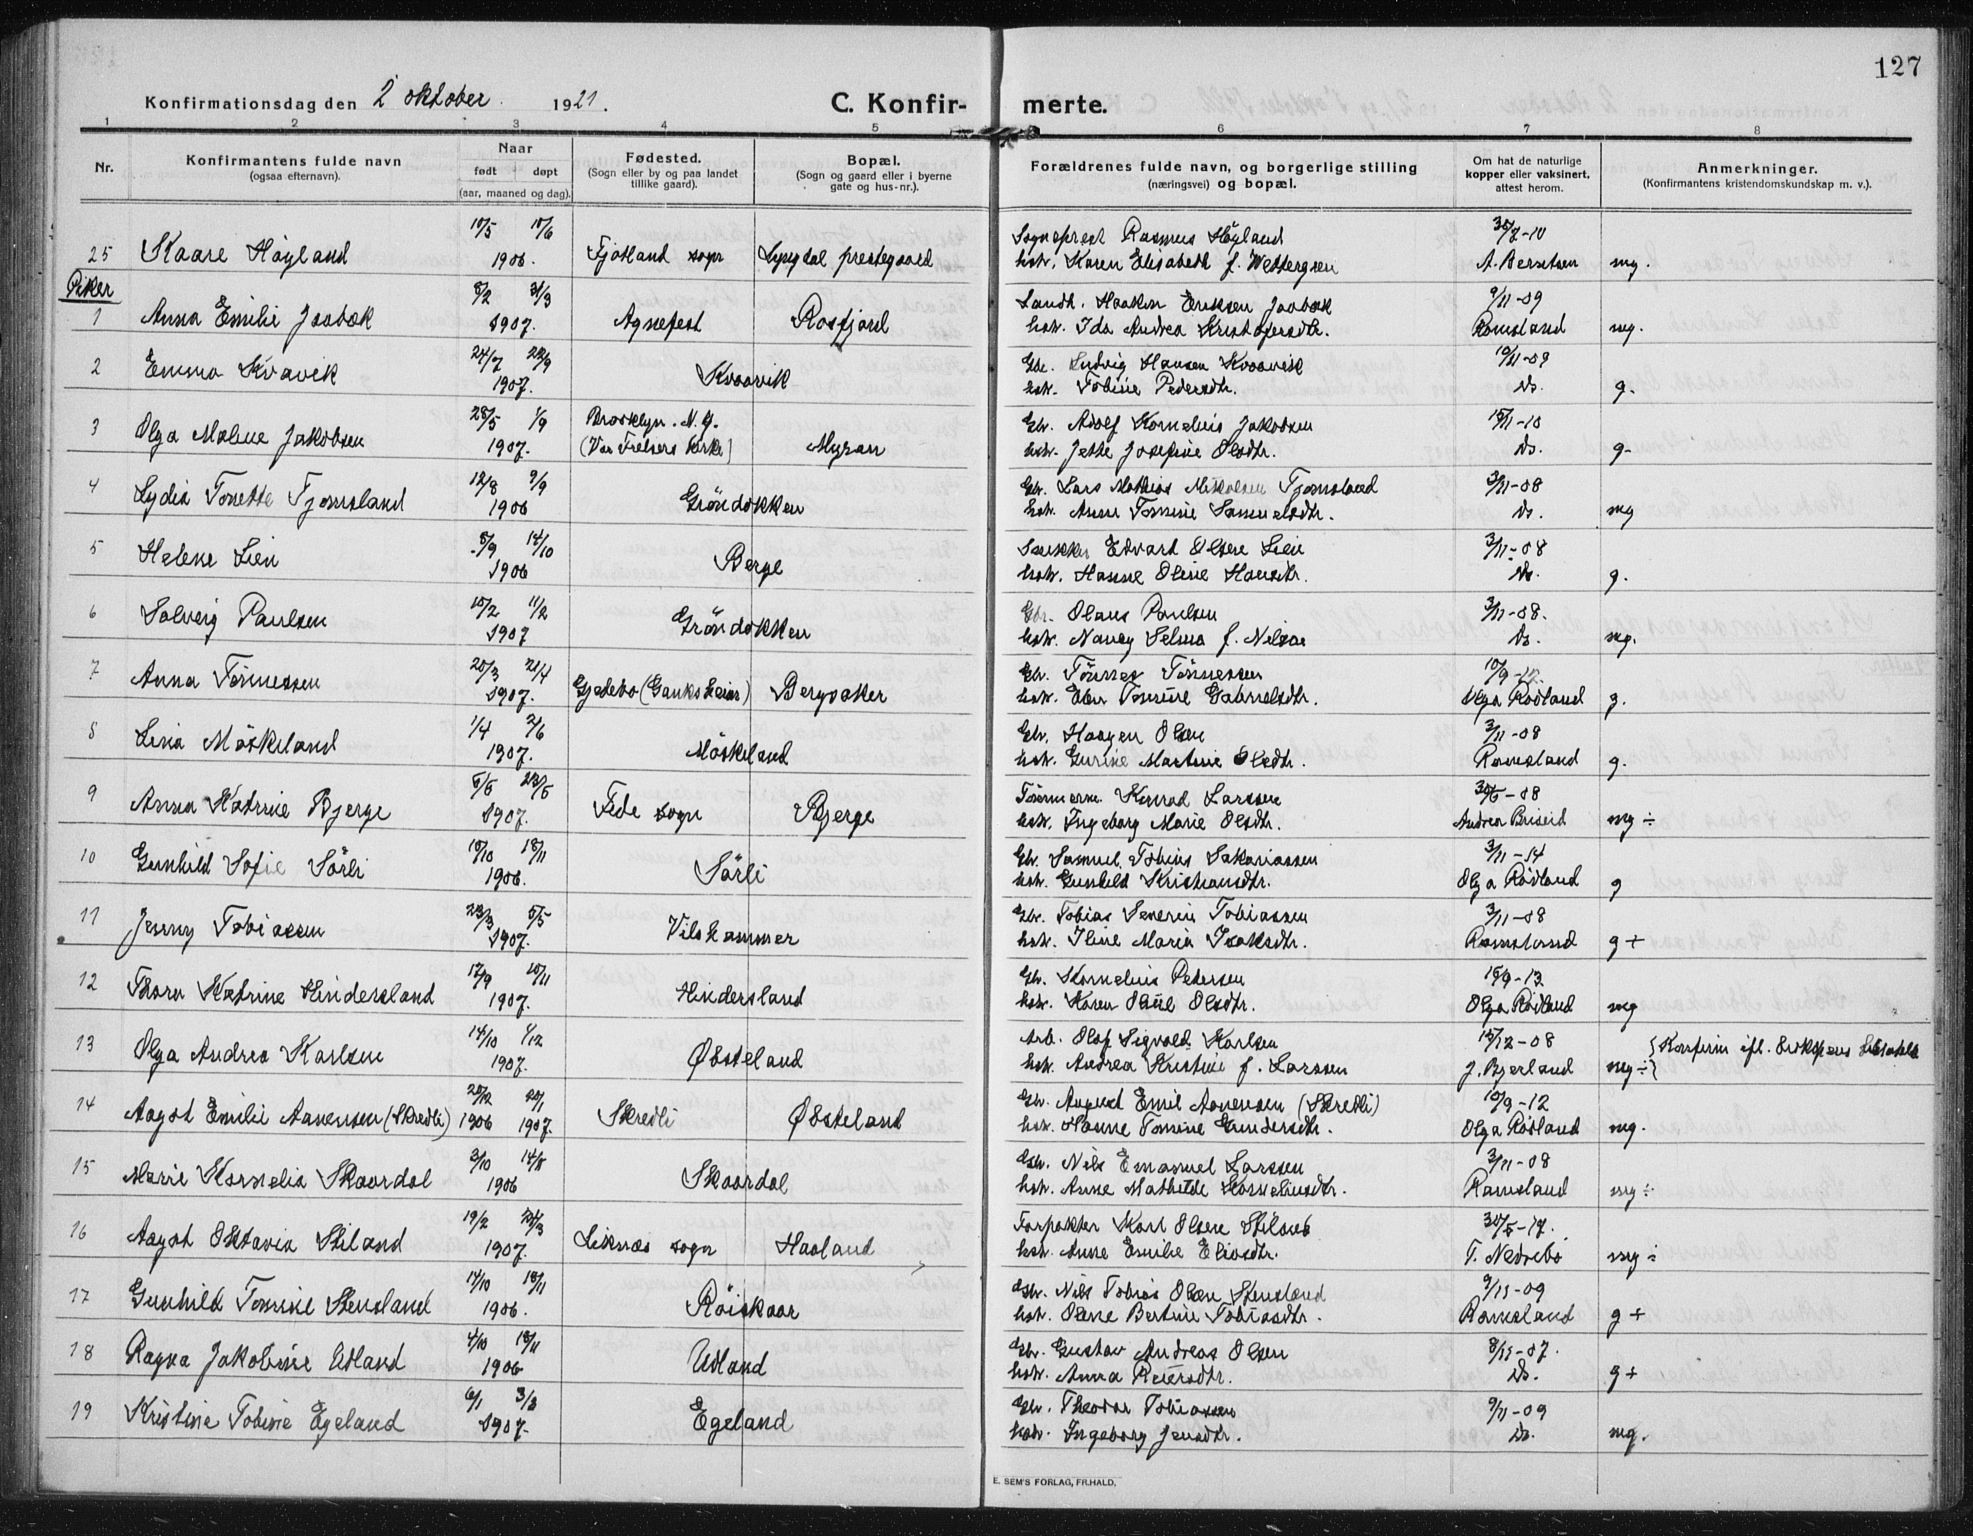 127
Konfirmationsdag den 2 oktober 1921.
C. Konfir- merte.
1 2 3 4 5 6 7 8
Nr.
Konfirmantens fulde navn
(ogsaa efternavn).
Naar
født døpt
(aar, maaned og dag).
Fødested.
(Sogn eller by og paa landet
tillike gaard).
Bopæl.
(Sogn og gaard eller i byerne
gate og hus-nr.).
Forældrenes fulde navn, og borgerlige stilling
(næringsvei) og bopæl.
Om hat de naturlige
kopper eller vaksinert,
attest herom.
Anmerkninger.
(Konfirmantens kristendomskundskap m. v.).
17/5 17/6 Sogneprest Rasmus Höyland
25 Kaare Höyland 1906. Fjotland sogn Lyngdal prestegaard hst. Karen Elisabeth f. Wettergren A. Berntsen mg.
Piker
8/2 31/3 Landh. Haakon Eriksen Jaabæk 9/11-09
1 Anna Emilie Jaabæk 1907. Agnefest Rosfjord hst. Ida Andrea Kristofersdtr. Ramsland mg.
24/7 22/9 Gbr. Ludvig Hansen Kvaavik 10/11-09
2 Emma Kvavik 1907. Kvaavik hst. Tobine Pedersdtr. Ds. g.
28/5 1/9 Brooklyn. N.Y. Gbr. Adolf Kornelius Jakobsen 15/11-10
3 Olga Malene Jakobsen 1907. (Vor Frelsers Kirke) Myran hst. Jette Josefine Olsdtr. Ds. g-
12/8 9/9 Gbr. Lars Mathias Mikalsen Tjomsland 3/11-08
4 Lydia Tonette Tjomsland 1906 Gröndokken hst. Anne Tomine Samuelsdtr. Ds. mg
5/9 14/10 Snekker Edvart Olsen Lien 3/11-08
5 Helene Lien 1906 Berge hst. Hanne Oline Hansdtr. Ds. g.
15/2 11/2 Gbr. Olaus Paulsen 3/11-08.
6 Solveig Paulsen 1907 Gröndokken hst. Nancy Selma f. Nilsen Ds. mg.
20/3 21/4 Gbr. Tönnes Tönnessen 10/9-12.
7 Anna Tönnessen 1907. Bergsaker hst. Elen Tomine Gabrielsdtr. Olga Rödland g.
1/4 2/6 Gbr. Haagen Olsen 3/11-08
8 Lina Möskeland 1907. Möskeland hst. Gurine Martine Olsdtr. Ramsland g.
6/5 Tömmerm. Konrad Larssen 30/5-08
9 Anna Katrine Bjerge 1907. Fede sogn Bjerge hst. Ingeborg Marie Olsdtr. Andrea Briseid mg ÷
10/10 18/11 Gbr. Samuel Tobias Sakariassen 3/11-14
10 Gunhild Sofie Sörli 1906. Sörli hst. Gunhild Kristiansdtr. Olga Rödland g
23/3 5/5 Gbr. Tobias Severin Tobiassen 3/11-08
11 Jenny Tobiassen 1907. Vilskammer hst. Iline Maria Isaksdtr. Ramsland g +
12/9 10/11 Gbr. Kornelius Pedersen 15/9-13
12 Thora Katrine Hindersland 1907. Hindersland hst. Karen Oline Olsdtr. Olga Rödland mg
14/10 1/12 Arb. Olaf Sigvald Karlsen 15/12-08
13 Olga Andrea Karlsen 1907. Øbsteland hst. Andrea Kristine f. Larssen J. Bjerland mg ÷ { Konfirm ifl.
20/12 20/1 Gbr. August Emil Aanensen (Skredli) 10/9-12
14 Aagot Emilie Aanensen (Skredli) 1906 1907. Skredli Øbsteland hst. Hanne Tomine Gundersdtr. Olga Rödland mg.
3/10 14/8 Gbr. Nils Emanuel Larssen 3/11-08
15 Marie Kornelia Skaardal 1906 Skaardal hst. Anne Mathilde Korneliusdtr. Ramsland mg ÷
19/2 24/3 Forpakter Karl Olsen 30/5-17.
16 Aagot Oktavia Stiland 1907. Liknes sogn Haaland hst. Anne Emilie Eliasdtr. T. Nedrebö mg ÷
14/10 18/11 Gbr. Nils Tobias Olsen Stensland 9/11-09
17 Gunhild Tomine Stensland 1906. Röiskaar hst. Olene Bertine Tobiasdtr. Ramsland g +
4/10 18/11 Gbr. Gustav Andreas Olsen 8/11-07.
18 Ragna Jakobine Udland 1906 Udland hst. Anna Reiersdtr. Ds. g +
6/1 3/3 Gbr. Theodor Tobiassen 9/11-09
19 Kristine Tobine Egeland 1907- Egeland hst. Ingeborg Jensdtr. Ds. mg.
E. SEM'S FORLAG, FR.HALD.